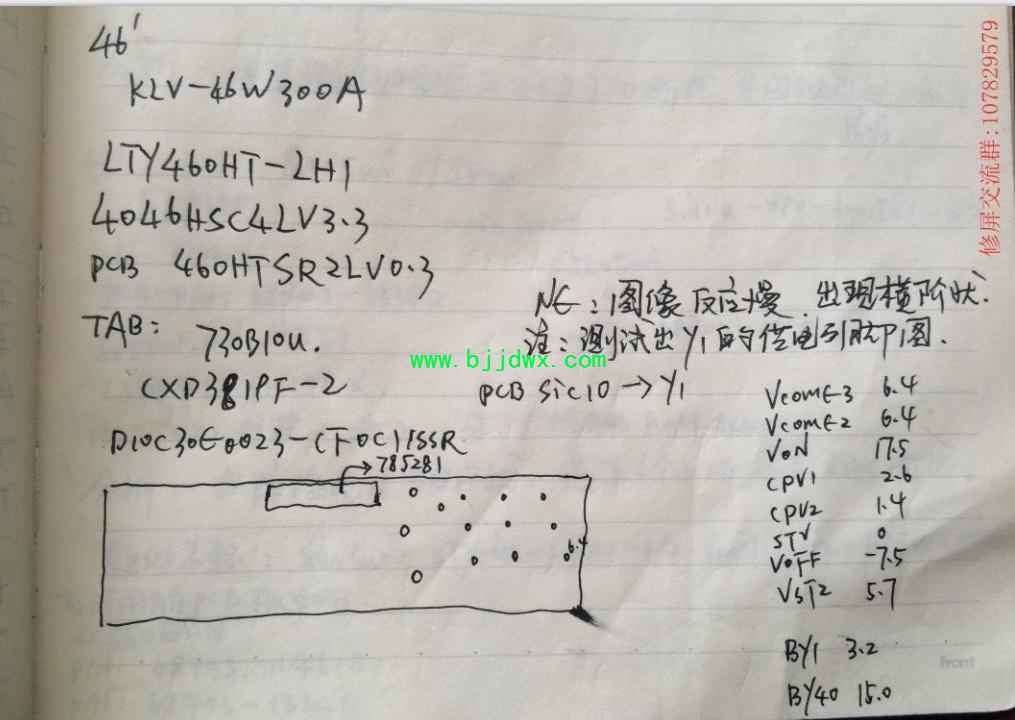 46'
KLV-46W300A
LTY460HT-LH1
4046HSC4LV3.3
PCB 460HTSR2LV0.3
TAB: 730B10U.
CXD3819F-2
D10C30E0023-(下0C)1SSR
785281
6.4
NE:图像反应慢.出现横阶状.
注:测试出Y1的供电引脚P1图.
PCB SiC10→Y1
VCOME-3 6.4
VCOME2 6.4
VON 17.5
CPV1 2.6
CPV2 1.4
STV 0
VOFF -7.5
VST2 5.7
BY1 3.2
BY40 15.0
www.bjjdwx.com
修屏交流群:107829579
Front